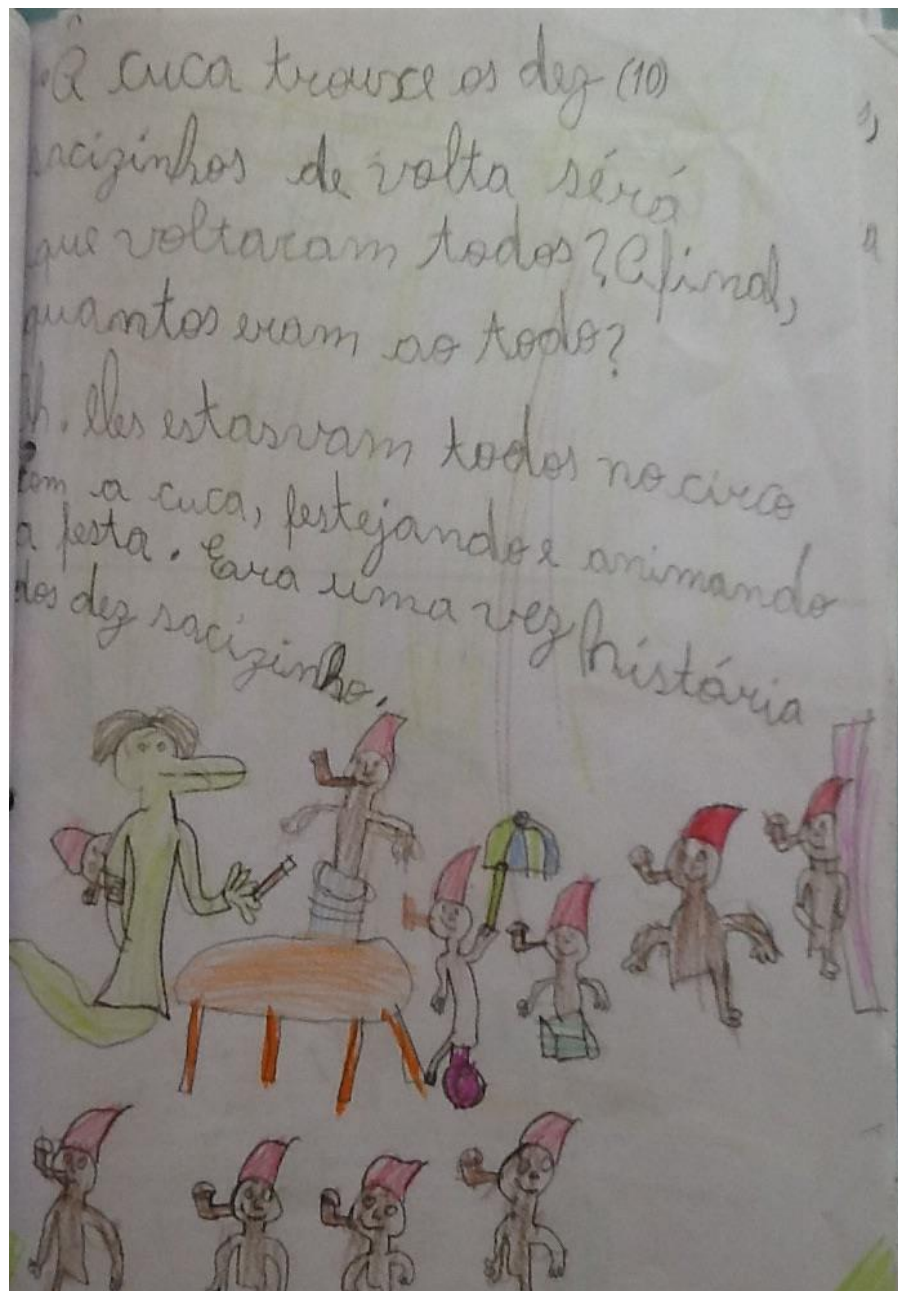 A cuca trouxe os dez (10)
sacizinhos de volta sérá
que voltaram todos? Afinal,
quantos eram ao todo?
Ah. Eles estasvam todos no circo
com a cuca, festejando e animando
a festa. Eara uma vez história
dos dez sacizinho.